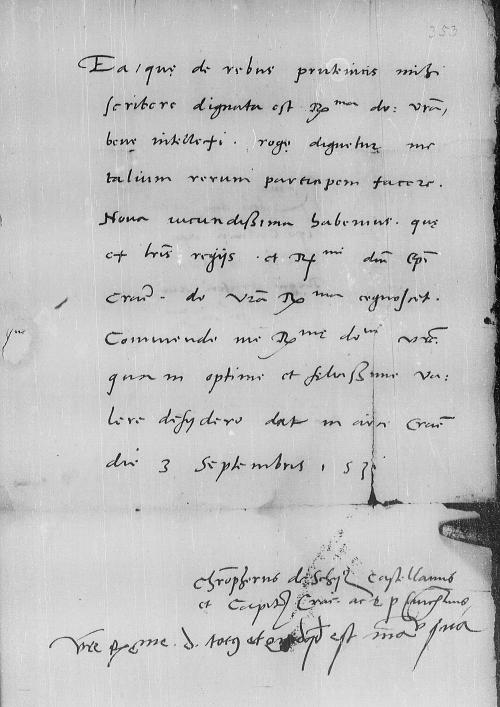 353
Ea, quę de rebus prutenicis mihi
scribere dignata est Rma do: vrā,
bene intellexi. rogo dignetur me
talium rerum participem facere.
Nova iucundissima habemus. quę
ex lris regiis. et Rmi dni Epi
Crac. do vrā Rma cognoscet.
Commendo me Rmę doni vrę.
quam optime et felicissime va:
lere desydero dat in arce Crac
die 3 Septembris 153
que
Castellanus
et Capit Crac ac
Vre Rme. d. totus et quidquid est sua